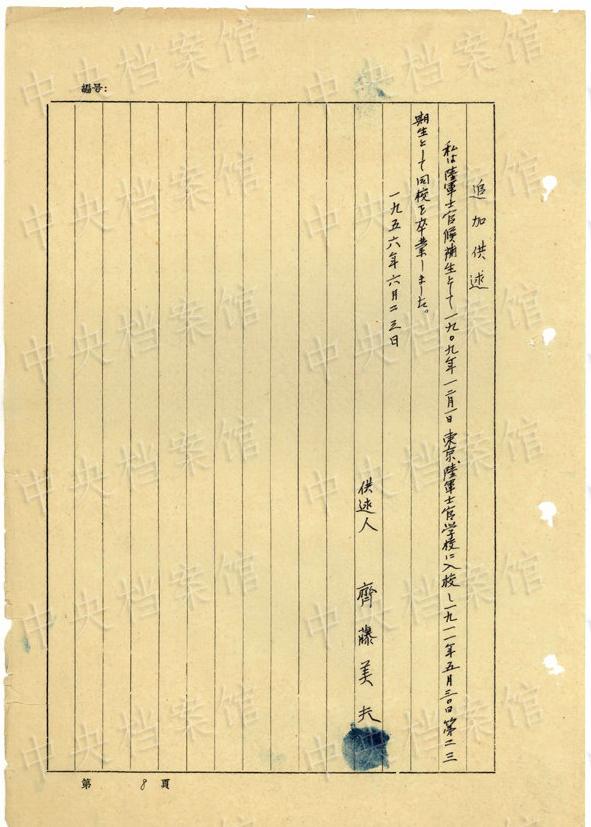 編号:
追加供述
私は陸軍士官候補生として一九〇九年一二月一日東京陸軍士官学校に入校し一九一一年五月三〇日第二三
期生として同校を卒業しました。
一九五六年六月二三日
供述人　齊藤美夫
第 8 頁
中央档案馆